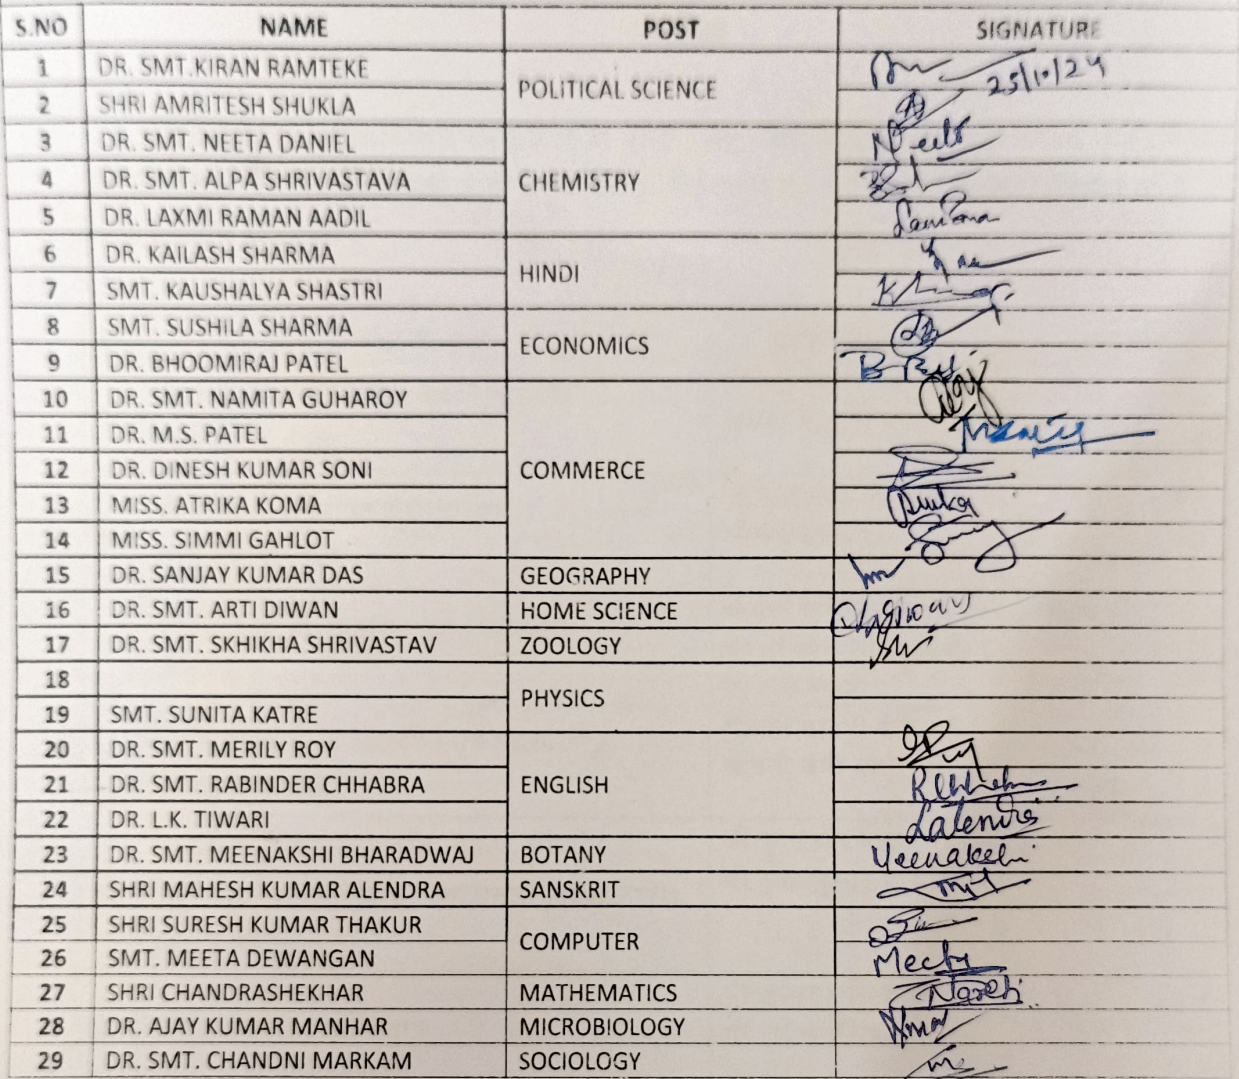 S.NO NAME POST SIGNATURE
1 DR. SMT.KIRAN RAMTEKE POLITICAL SCIENCE 25/10/24
2 SHRI AMRITESH SHUKLA
3 DR. SMT. NEETA DANIEL CHEMISTRY
4 DR. SMT. ALPA SHRIVASTAVA
5 DR. LAXMI RAMAN AADIL
6 DR. KAILASH SHARMA HINDI
7 SMT. KAUSHALYA SHASTRI
8 SMT. SUSHILA SHARMA ECONOMICS
9 DR. BHOOMIRAJ PATEL
10 DR. SMT. NAMITA GUHAROY COMMERCE
11 DR. M.S. PATEL
12 DR. DINESH KUMAR SONI
13 MISS. ATRIKA KOMA
14 MISS. SIMMI GAHLOT
15 DR. SANJAY KUMAR DAS GEOGRAPHY
16 DR. SMT. ARTI DIWAN HOME SCIENCE
17 DR. SMT. SKHIKHA SHRIVASTAV ZOOLOGY
18 PHYSICS
19 SMT. SUNITA KATRE
20 DR. SMT. MERILY ROY ENGLISH
21 DR. SMT. RABINDER CHHABRA
22 DR. L.K. TIWARI
23 DR. SMT. MEENAKSHI BHARADWAJ BOTANY Meenakshi
24 SHRI MAHESH KUMAR ALENDRA SANSKRIT
25 SHRI SURESH KUMAR THAKUR COMPUTER
26 SMT. MEETA DEWANGAN
27 SHRI CHANDRASHEKHAR MATHEMATICS
28 DR. AJAY KUMAR MANHAR MICROBIOLOGY
29 DR. SMT. CHANDNI MARKAM SOCIOLOGY